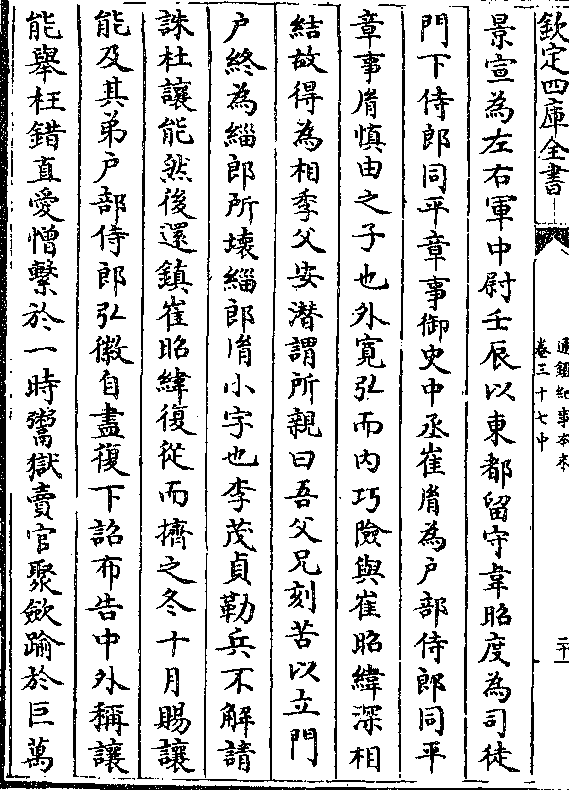 欽定四庫全書
通鑑紀事本末
卷三十七中
二十
景宣為左右軍中尉壬辰以東都留守韋昭度為司徒
門下侍郎同平章事御史中丞崔胤為户部侍郎同平
章事胤慎由之子也外寛弘而内巧險與崔昭緯深相
結故得為相季父安潛謂所親曰吾父兄刻苦以立門
户終為緇郎所壊緇郎胤小字也李茂貞勒兵不解請
誅杜讓能然後還鎮崔昭緯復從而擠之冬十月賜讓
能及其弟户部侍郎弘徽自盡復下詔布告中外稱讓
能舉枉錯直愛憎繫於一時鬻獄賣官聚斂踰於巨萬